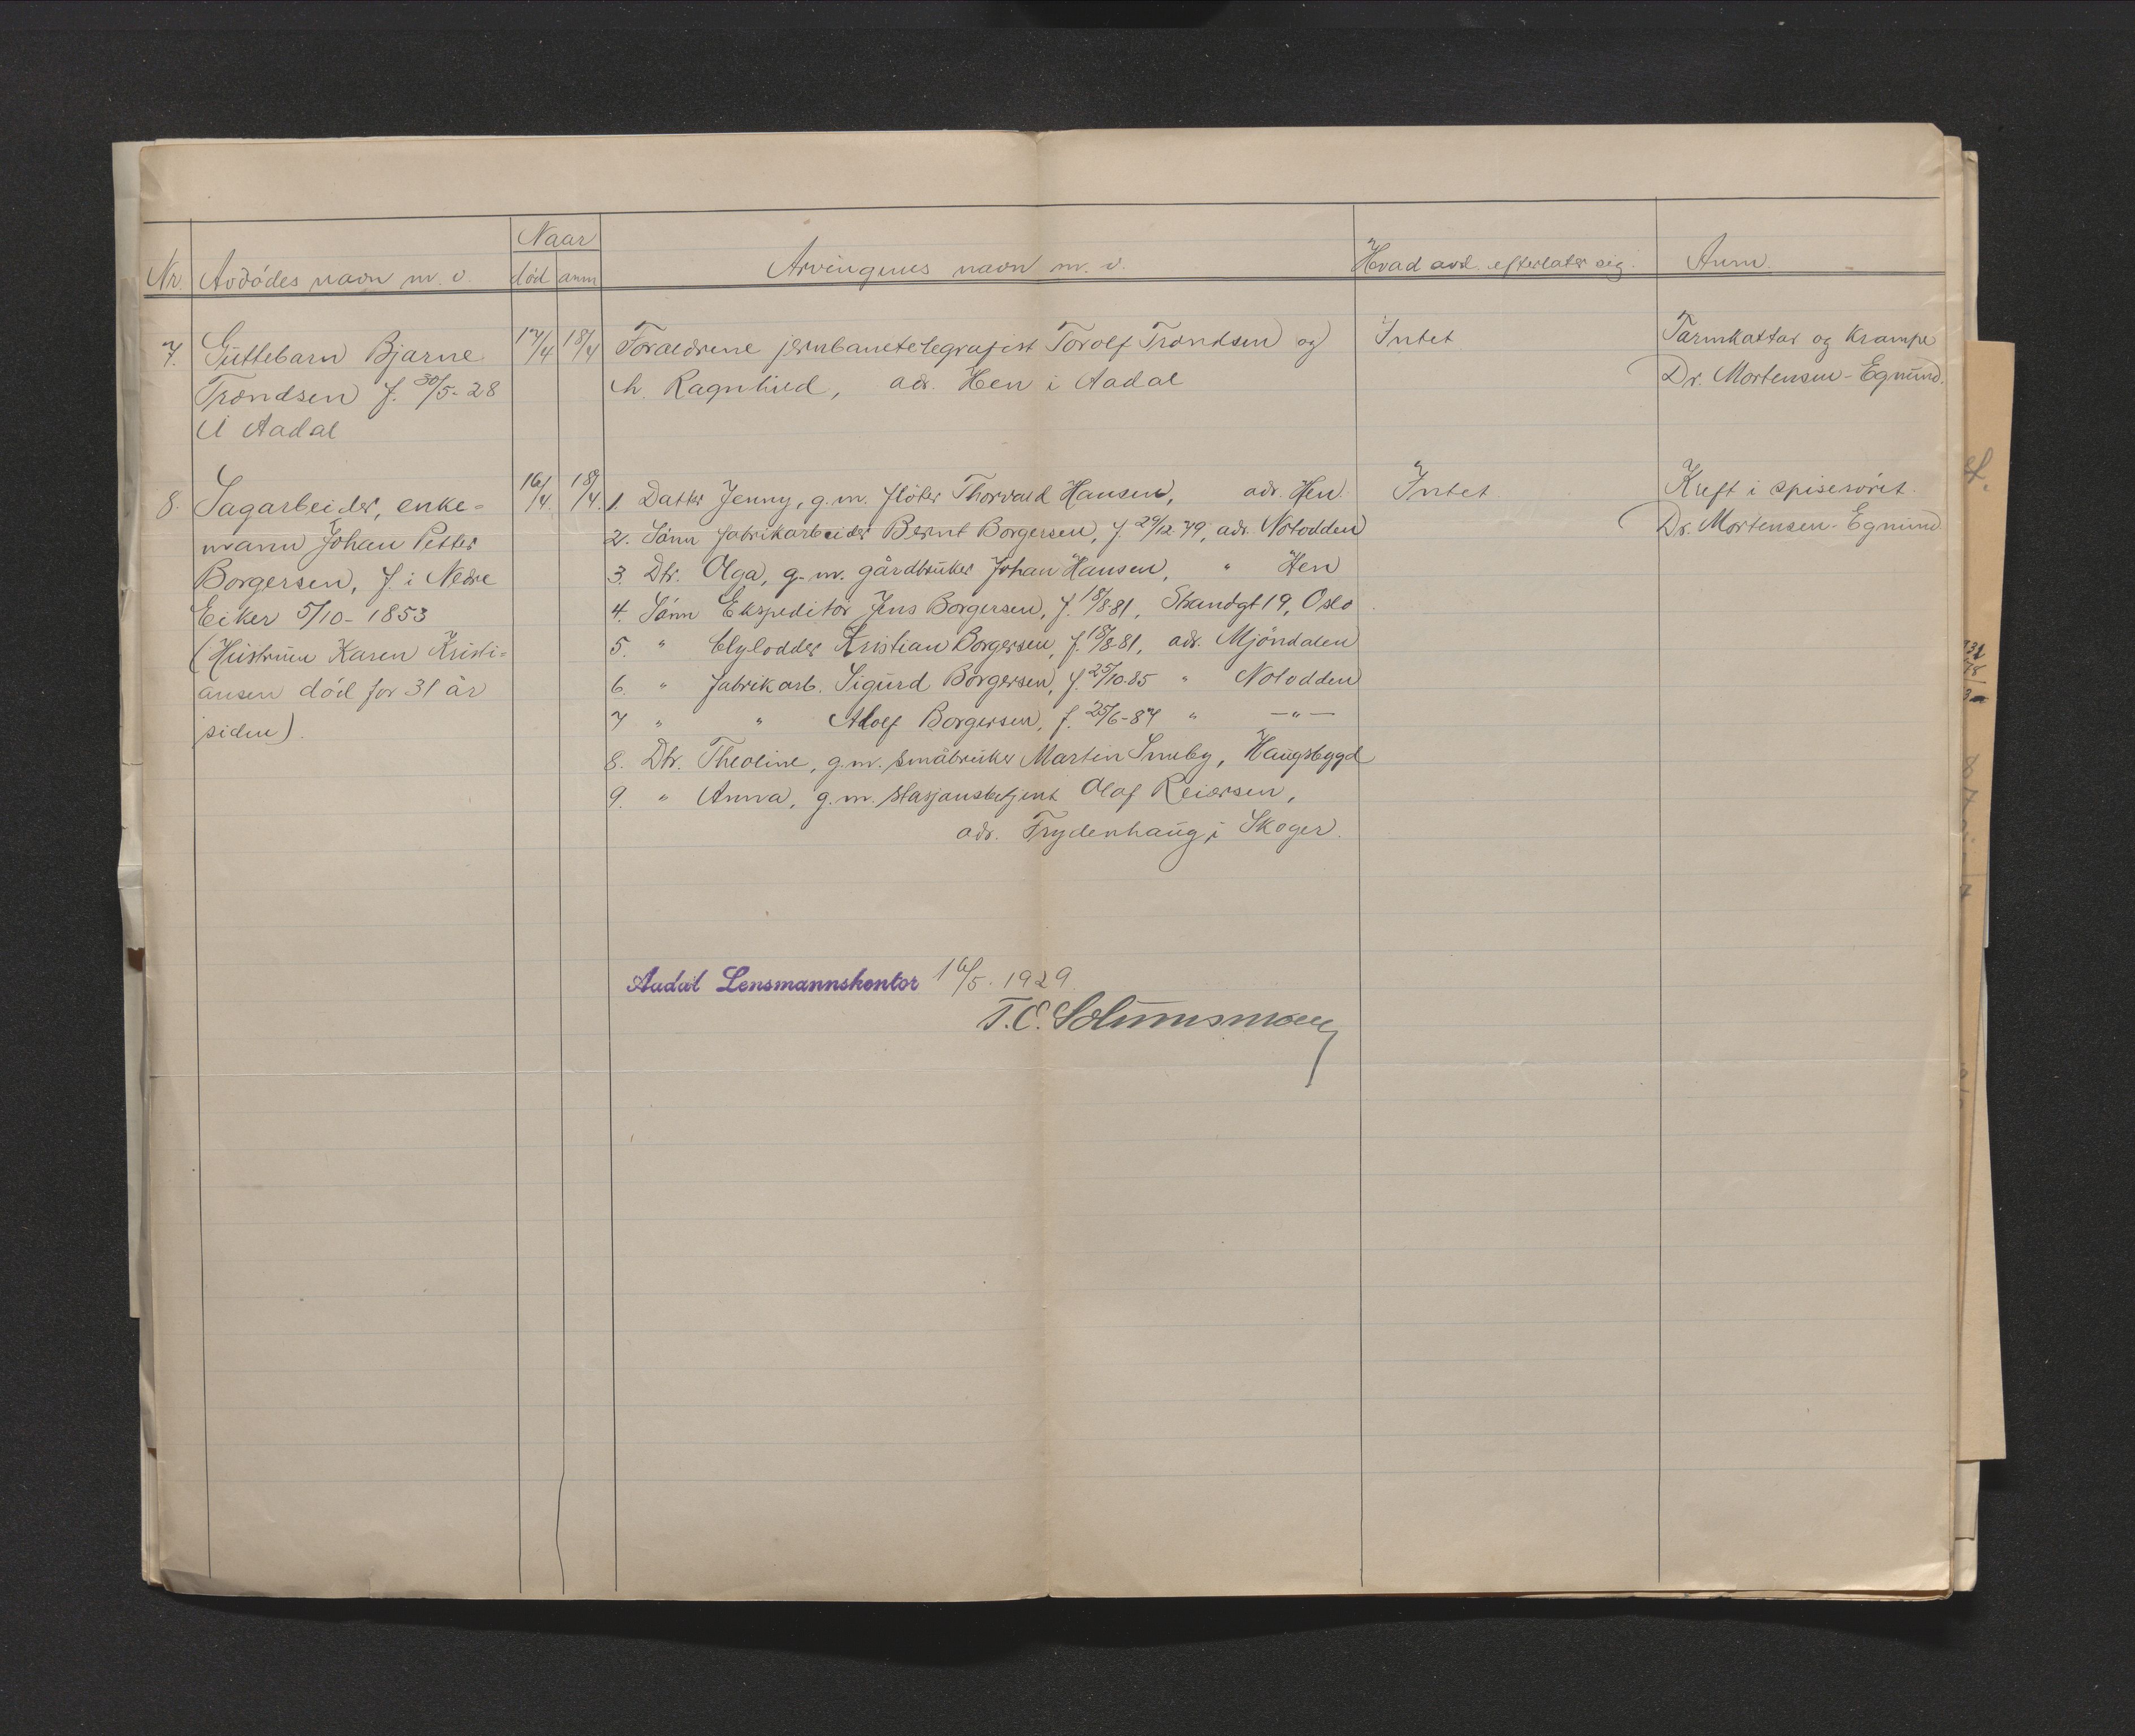 Naar
Nr. Avdødes navn m. v. død anm Arvingenes navn m. v. Hvad avd. efterlater sig. Anm.
7. Guttebarn Bjarne 17/4 18/4 Foraeldrene jernbanetelegrafist Torolf Trondsen og Intet Tarmkattar og Krampe
Trondsen f. 30/5-28 h. Ragnhild, adr. Hen i Aadal Dr. Mortensen-Egnund.
i Aadal
8. Sagarbeider, enke= 16/4 18/4. 1. Datter Jenny, g.m. fløter Thorvald Hansen, adr. Hen. Intet Kreft i spiserøret.
mann Johan Petter 2. Sønn fabrikarbeider Bernt Borgersen, f. 29/12-79, adr. Notodden Dr. Mortensen-Egnund
Borgersen, f. i Nedre 3. Dtr. Olga, g.m. gårdbruker Johan Hansen, " Hen
Eiker 5/10-1853 4. Sønn Ekspeditør Jens Borgersen, f. 18/8-81, Strandgt 19, Oslo
(Hustruen Karen Kristi= 5. " Kristian Borgersen, f. 18/8-81, adr. Mjøndalen
ansen død for 31 år 6. " fabrikarb. Sigurd Borgersen, f. 25/10-85 " Notodden
siden). 7 " " Alolf Borgersen, f. 25/6-87 " —"—
8. Dtr. Theoline, g.m. småbruker Martin Smeby, Haugsbygd
9. " Anna, g.m. stasjonsbetjent Olaf Reiersen,
adr. Frydenhaug i Skoger.
Aadal Lensmannskontor 16/5. 1929.